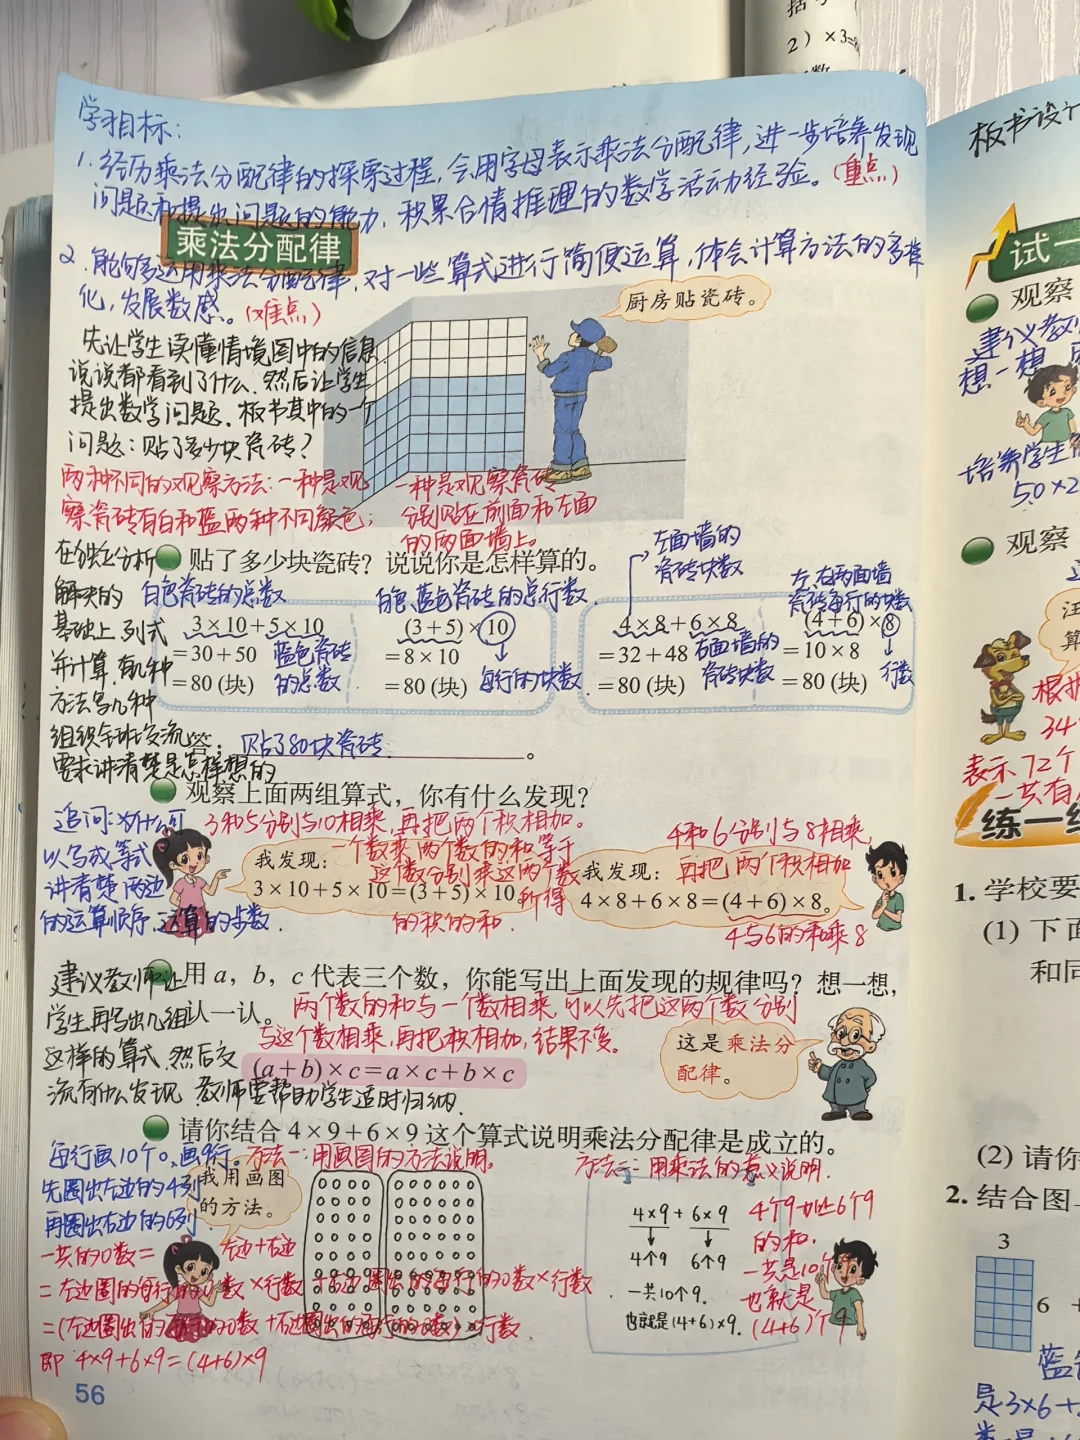 括
2）×3=
学习目标：
1.经历乘法分配律的探索过程，会用字母表示乘法分配律，进一步培养发现
问题和提出问题的能力，积累合情推理的数学活动经验。（重点）
乘法分配律
2.能够运用乘法分配律，对一些算式进行简便运算，体会计算方法的多样
化，发展数感。（难点）
厨房贴瓷砖。
先让学生读懂情境图中的信息
说说都看到了什么.然后让学生
提出数学问题.板书其中的一个
问题：贴了多少块瓷砖？
两种不同的观察方法：一种是观
察瓷砖有白和蓝两种不同颜色；
一种是观察瓷砖
分别贴在前面和左面
的两面墙上。
贴了多少块瓷砖？说说你是怎样算的。
在独立分析
解决的
基础上.列式
并计算.有几种
方法写几种
组织全班交流
要求讲清楚是怎样想的
白色瓷砖的总数
3×10+5×10
=30+50
=80(块)
蓝色瓷砖
的总数
白色、蓝色瓷砖的总行数
(3+5)×10
=8×10
=80(块)
每行的块数
左面墙的
瓷砖块数
4×8+6×8
=32+48
=80(块)
右面墙的
瓷砖块数
左、右两面墙
瓷砖每行的块数
(4+6)×8
=10×8
=80(块)
行数
答：贴了80块瓷砖。
观察上面两组算式，你有什么发现？
追问：为什么可
以写成等式
讲清楚两边
的运算顺序、运算的步数.
3和5分别与10相乘，再把两个积相加。
我发现：
3×10+5×10=(3+5)×10
一个数乘两个数的和等于
这个数分别乘这两个数
所得
的积的和.
4和6分别与8相乘
再把两个积相加
我发现：
4×8+6×8=(4+6)×8。
4与6的和乘8
用a，b，c代表三个数，你能写出上面发现的规律吗？想一想，
认一认。
建议教师让
学生再写出几组
这样的算式.然后交
流有什么发现.教师要帮助学生适时归纳.
两个数的和与一个数相乘.可以先把这两个数分别
与这个数相乘，再把积相加，结果不变。
(a+b)×c=a×c+b×c
这是乘法分
配律。
请你结合4×9+6×9这个算式说明乘法分配律是成立的。
每行画10个o，画9行。
先圈出左边的4列
再圈出右边的6列
方法一：用画图的方法说明。
我用画图
的方法。
一共的o数=左边+右边
=左边圈的每行的o数×行数+右边圈出的每行的o数×行数
=(左边圈出的每行的o数+右边圈出的每行的o数)×行数
即 4×9+6×9=(4+6)×9
方法二：用乘法的意义说明.
4×9+6×9
4个9 6个9
一共10个9.
也就是(4+6)×9.
4个9加上6个9
的和.
一共是10个9
也就是
(4+6)个9
56
板书设计
试一
观察
建议教师
想一想
培养学生
50×2
观察
汪
算
根据
34
表示72个
一共有
练一练
1.学校要
(1)下面
和同
(2)请你
2.结合图
3
6 +
蓝色
是3×6+